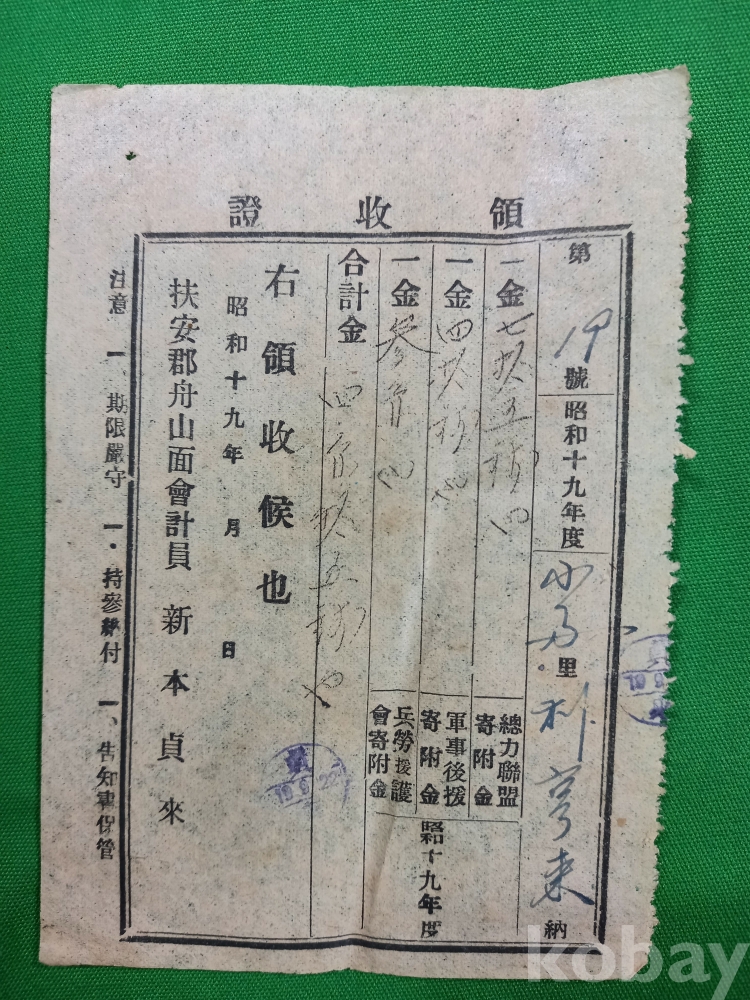 領收證
第19號 昭和十九年度 里 納
一金七拾五錢也 總力聯盟寄附金
一金四拾錢也 軍事後援寄附金
一金參円也 兵勞援護會寄附金
昭十九年度
合計金 四円拾五錢也
右領收候也
昭和十九年 月 日
扶安郡舟山面會計員 新本貞來
注意 一、期限嚴守 一、持參納付 一、告知書保管
19.6.22
kobay